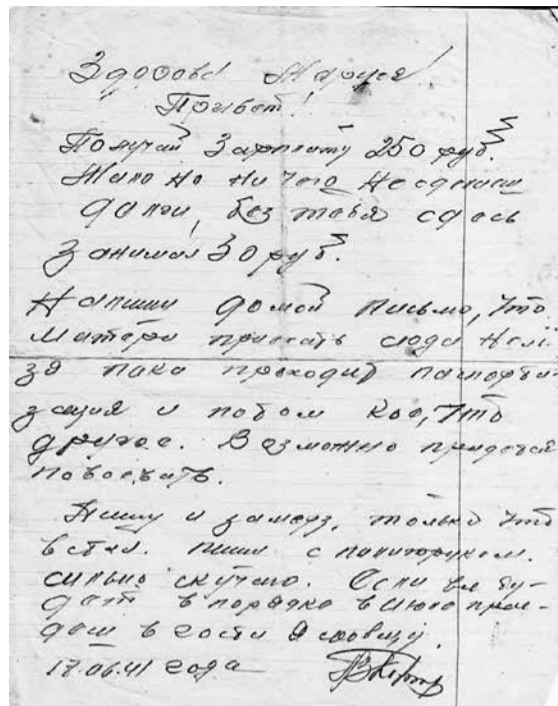 Здорова! Маруся!
Привет!
Получай зарплату 250 руб.
Мало но ни чего не сделаеш
долги, без тебя сдесь
занимал 30 руб.
Напиши домой письмо, что
матери приехать сюда нель
зя пака проходит паспорти-
зация и потом кое, что
другое. Возможно придется
повоевать.
Пишу и замерз, только что
встал. пили с политруком.
сильно скучаю. Если все бу-
дет в порядке в июле прие-
деш в гости
17.06.41 года